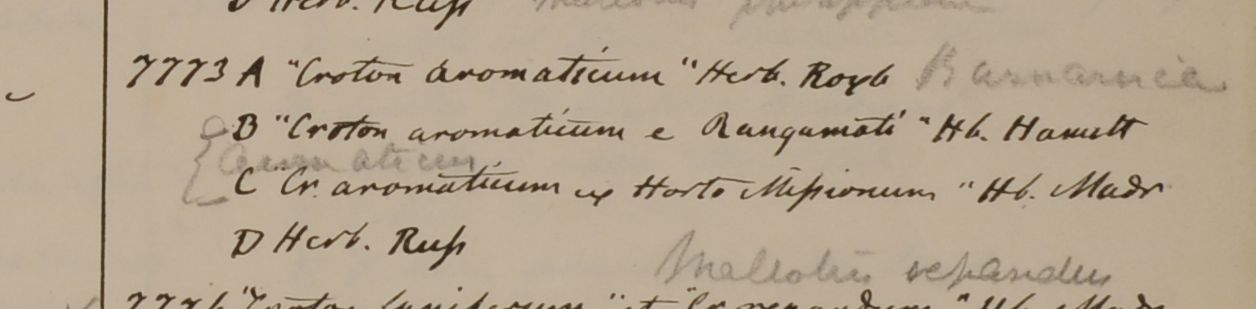 D Herb. Russ
7773 A "Croton aromaticum" Herb. Roxb
B "Croton aromaticum e Rangamati" Hb. Hamilt
aromaticum
C "Cr. aromaticum ex Horto Missionum" Hb. Madr
D Herb. Russ
Mallotus repandus
"Croton" "et "Cr. repandum" Hb. Madr